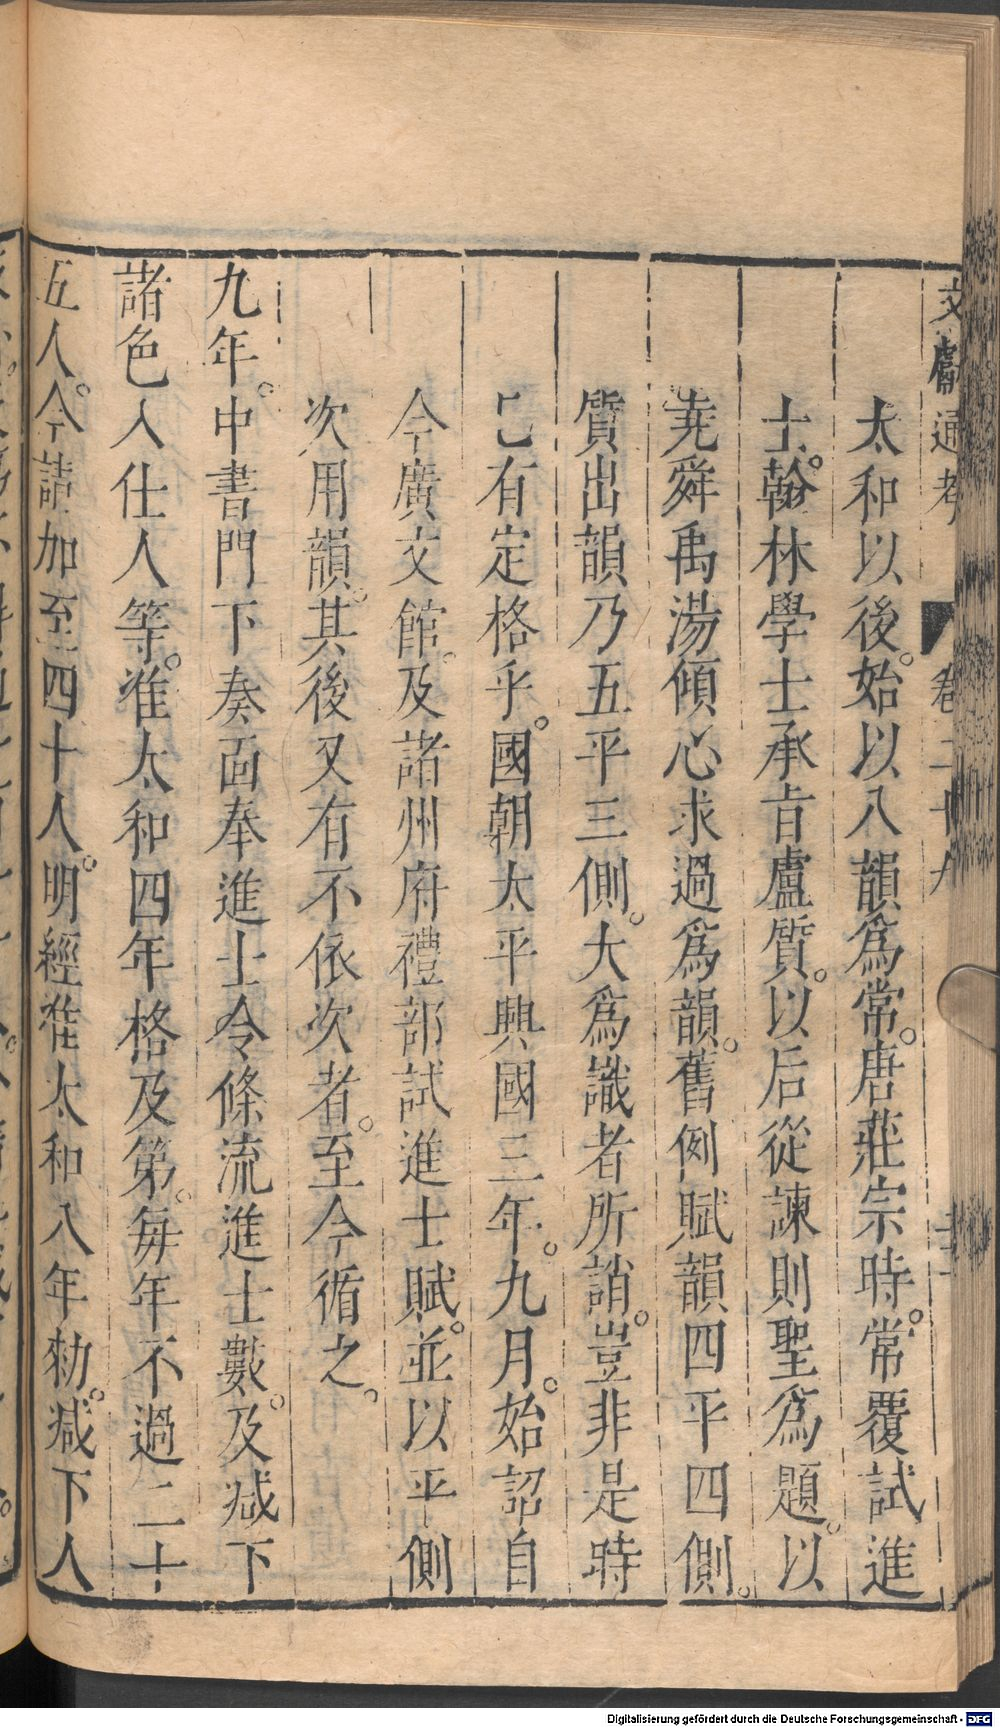 文獻通考 卷二十九
太和以後。始以八韻爲常。唐莊宗時。常覆試進
士。翰林學士承㫖盧質。以后從諫則聖爲題。以
堯舜禹湯傾心求過爲韻。舊例賦韻四平四側。
質出韻乃五平三側。大爲識者所誚。豈非是時
已有定格乎。國朝太平興國三年。九月。始詔自
今廣文館。及諸州府禮部試進士賦。並以平側
次用韻。其後又有不依次者。至今循之。
九年。中書門下奏面奉進士令條流進士數。及减下
諸色入仕人等。准太和四年格及第。每年不過二十
五人。今請加至四十人。明經准太和八年勑。减下人
Digitalisierung gefördert durch die Deutsche Forschungsgemeinschaft - DFG